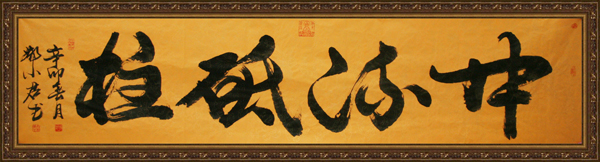 中流砥柱
辛卯春月
郑小君书